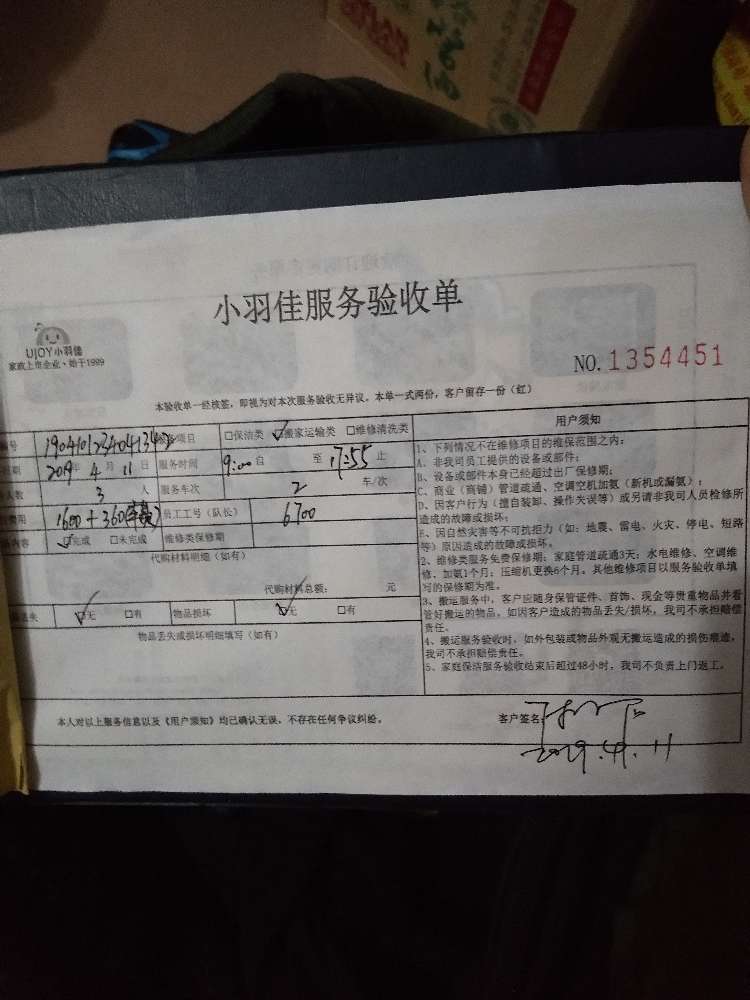 小羽佳服务验收单
UJOY小羽佳
家政上市企业·始于1999
NO.1354451
本验收单一经核签，即视为对本次服务验收无异议。本单一式两份，客户留存一份（红）
编号 项目 □保洁类 ☑搬家运输类 □维修清洗类
日期 2019年4月11日 服务时间 9:00自 至 17:55止
人数 3 人 服务车次 2 车/次
费用 1600+360 员工工号（队长） 6700
内容 ☑完成 □未完成 维修类保修期
代购材料明细（如有）
代购材料总额： 元
丢失 ☑无 □有 物品损坏 ☑无 □有
物品丢失或损坏明细填写（如有）
用户须知
1、下列情况不在维修项目的维保范围之内：
A、非我司员工提供的设备或部件；
B、设备或部件本身已经超过出厂保修期；
C、商业（商铺）管道疏通、空调空机加氨（新机或漏氨）；
D、因客户行为（擅自装卸、操作失误等）或另请非我司人员检修所
造成的故障或损坏；
E、因自然灾害等不可抗拒力（如：地震、雷电、火灾、停电、短路
等）原因造成的故障或损坏。
2、维修类服务免费保修期：家庭管道疏通3天；水电维修、空调维
修、加氨1个月；压缩机更换6个月。其他维修项目以服务验收单填
写的保修期为准。
3、搬运服务中，客户应随身保管证件、首饰、现金等贵重物品并看
管好搬运的物品。如因客户造成的物品丢失/损坏，我司不承担赔偿
责任。
4、搬运服务验收时，如外包装或物品外观无搬运造成的损伤痕迹，
我司不承担赔偿责任。
5、家庭保洁服务验收结束后超过48小时，我司不负责上门返工。
本人对以上服务信息以及《用户须知》均已确认无误，不存在任何争议纠纷。
客户签名：
2019.4.11